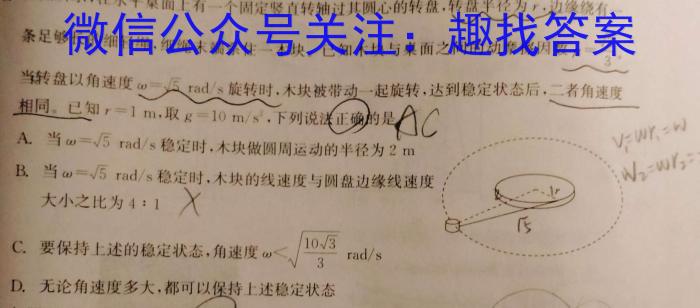 在水平桌面上有一个固定竖直转轴过其圆心的转盘,转盘半径为r,边缘绕有一
微信公众号关注:趣找答案
条足够
木块与桌面之
3
当转盘以角速度ω=√5 rad/s旋转时,木块被带动一起旋转,达到稳定状态后,二者角速度
相同。已知r=1 m,取g=10 m/s²,下列说法正确的是 AC
A. 当ω=√5 rad/s稳定时,木块做圆周运动的半径为2 m
B. 当ω=√5 rad/s稳定时,木块的线速度与圆盘边缘线速度
大小之比为4:1 X
C. 要保持上述的稳定状态,角速度ω<√(10√3/3) rad/s
D. 无论角速度多大,都可以保持上述稳定状态
V₁=wr₁=w
r
√5